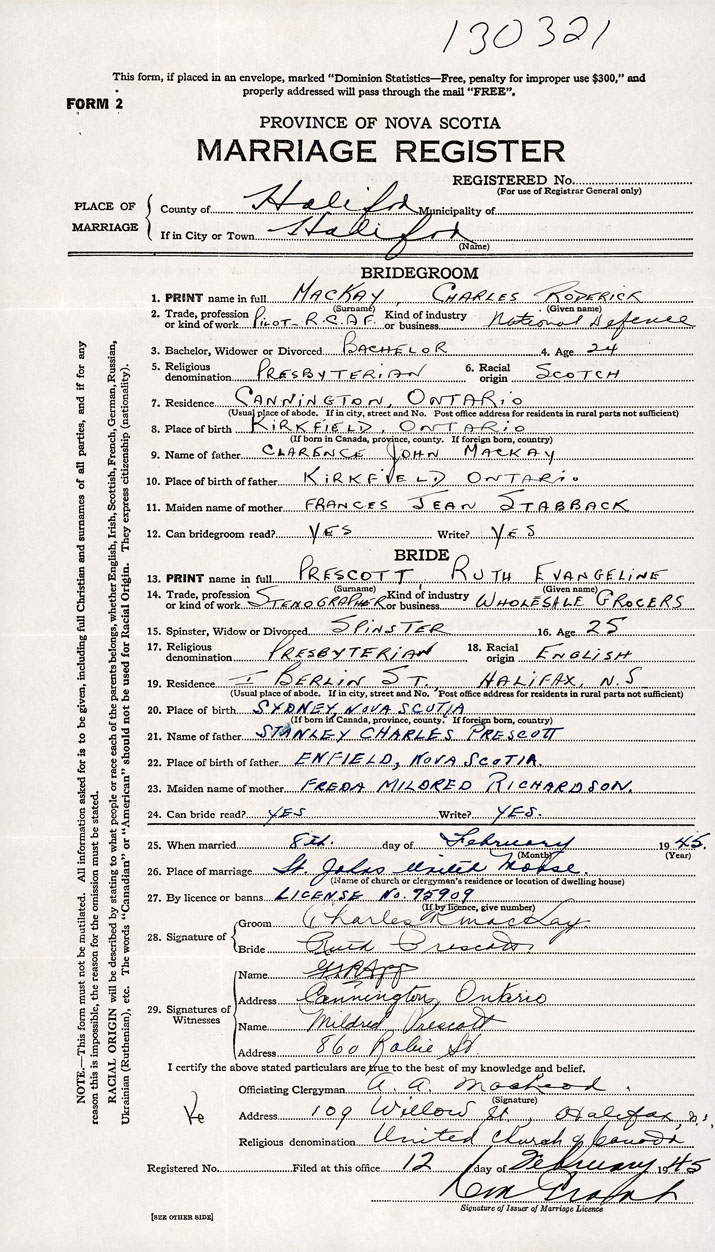 130321
This form, if placed in an envelope, marked "Dominion Statistics—Free, penalty for improper use $300," and
properly addressed will pass through the mail "FREE".
FORM 2
PROVINCE OF NOVA SCOTIA
MARRIAGE REGISTER
REGISTERED No.
(For use of Registrar General only)
PLACE OF MARRIAGE
County of Halifax Municipality of
If in City or Town Halifax
(Name)
BRIDEGROOM
1. PRINT name in full MACKAY, CHARLES RODERICK
(Surname) (Given name)
2. Trade, profession or kind of work PILOT-R.C.A.F. Kind of industry or business National Defence
3. Bachelor, Widower or Divorced BACHELOR 4. Age 24
5. Religious denomination PRESBYTERIAN 6. Racial origin SCOTCH
7. Residence CANNINGTON, ONTARIO
(Usual place of abode. If in city, street and No. Post office address for residents in rural parts not sufficient)
8. Place of birth KIRKFIELD, ONTARIO
(If born in Canada, province, county. If foreign born, country)
9. Name of father CLARENCE JOHN MACKAY
10. Place of birth of father KIRKFIELD ONTARIO
11. Maiden name of mother FRANCES JEAN STABBACK
12. Can bridegroom read? YES Write? YES
BRIDE
13. PRINT name in full PRESCOTT, RUTH EVANGELINE
(Surname) (Given name)
14. Trade, profession or kind of work STENOGRAPHER Kind of industry or business WHOLESALE GROCERS
15. Spinster, Widow or Divorced SPINSTER 16. Age 25
17. Religious denomination PRESBYTERIAN 18. Racial origin ENGLISH
19. Residence BERLIN ST., HALIFAX, N.S
(Usual place of abode. If in city, street and No. Post office address for residents in rural parts not sufficient)
20. Place of birth SYDNEY, NOVA SCOTIA
(If born in Canada, province, county. If foreign born, country)
21. Name of father STANLEY CHARLES PRESCOTT
22. Place of birth of father ENFIELD, NOVA SCOTIA.
23. Maiden name of mother FREDA MILDRED RICHARDSON.
24. Can bride read? YES Write? YES.
25. When married 8th. day of February 1945.
(Month) (Year)
26. Place of marriage St. Johns United Manse.
(Name of church or clergyman's residence or location of dwelling house)
27. By licence or banns LICENSE No. 75909
(If by licence, give number)
28. Signature of
Groom Charles R MacKay.
Bride Ruth Prescott.
29. Signatures of Witnesses
Name
Address Cannington, Ontario
Name Mildred Prescott
Address 860 Robie St.
I certify the above stated particulars are true to the best of my knowledge and belief.
Officiating Clergyman A. A. MacLeod.
(Signature)
Address 109 Willow St, Halifax, N.S.
Religious denomination United Church of Canada
Registered No. Filed at this office 12 day of February 1945
Signature of Issuer of Marriage Licence
[SEE OTHER SIDE]
NOTE.—This form must not be mutilated. All information asked for is to be given, including full Christian and surnames of all parties, and if for any
reason this is impossible, the reason for the omission must be stated.
RACIAL ORIGIN will be described by stating to what people or race each of the parents belongs, whether English, Irish, Scottish, French, German, Russian,
Ukrainian (Ruthenian), etc. The words "Canadian" or "American" should not be used for Racial Origin. They express citizenship (nationality).